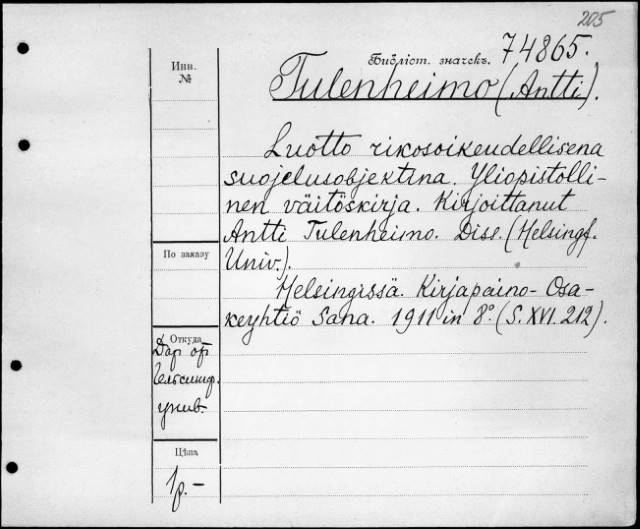 205
Библіот. значекъ. 74865.
Инв.
№
Tulenheimo (Antti).
Luotto rikosoikeudellisena
suojelusobjektina. Yliopistolli-
nen väitöskirja. Kirjoittanut
Antti Tulenheimo. Diss. (Helsingf.
Univ.).
По заказу
Helsingissä. Kirjapaino-Osa-
keyhtiö Sana. 1911 in 8°. (S. XVI. 212).
Откуда
Дар от
Гельсингф.
унив.
Цѣна
1 р. -